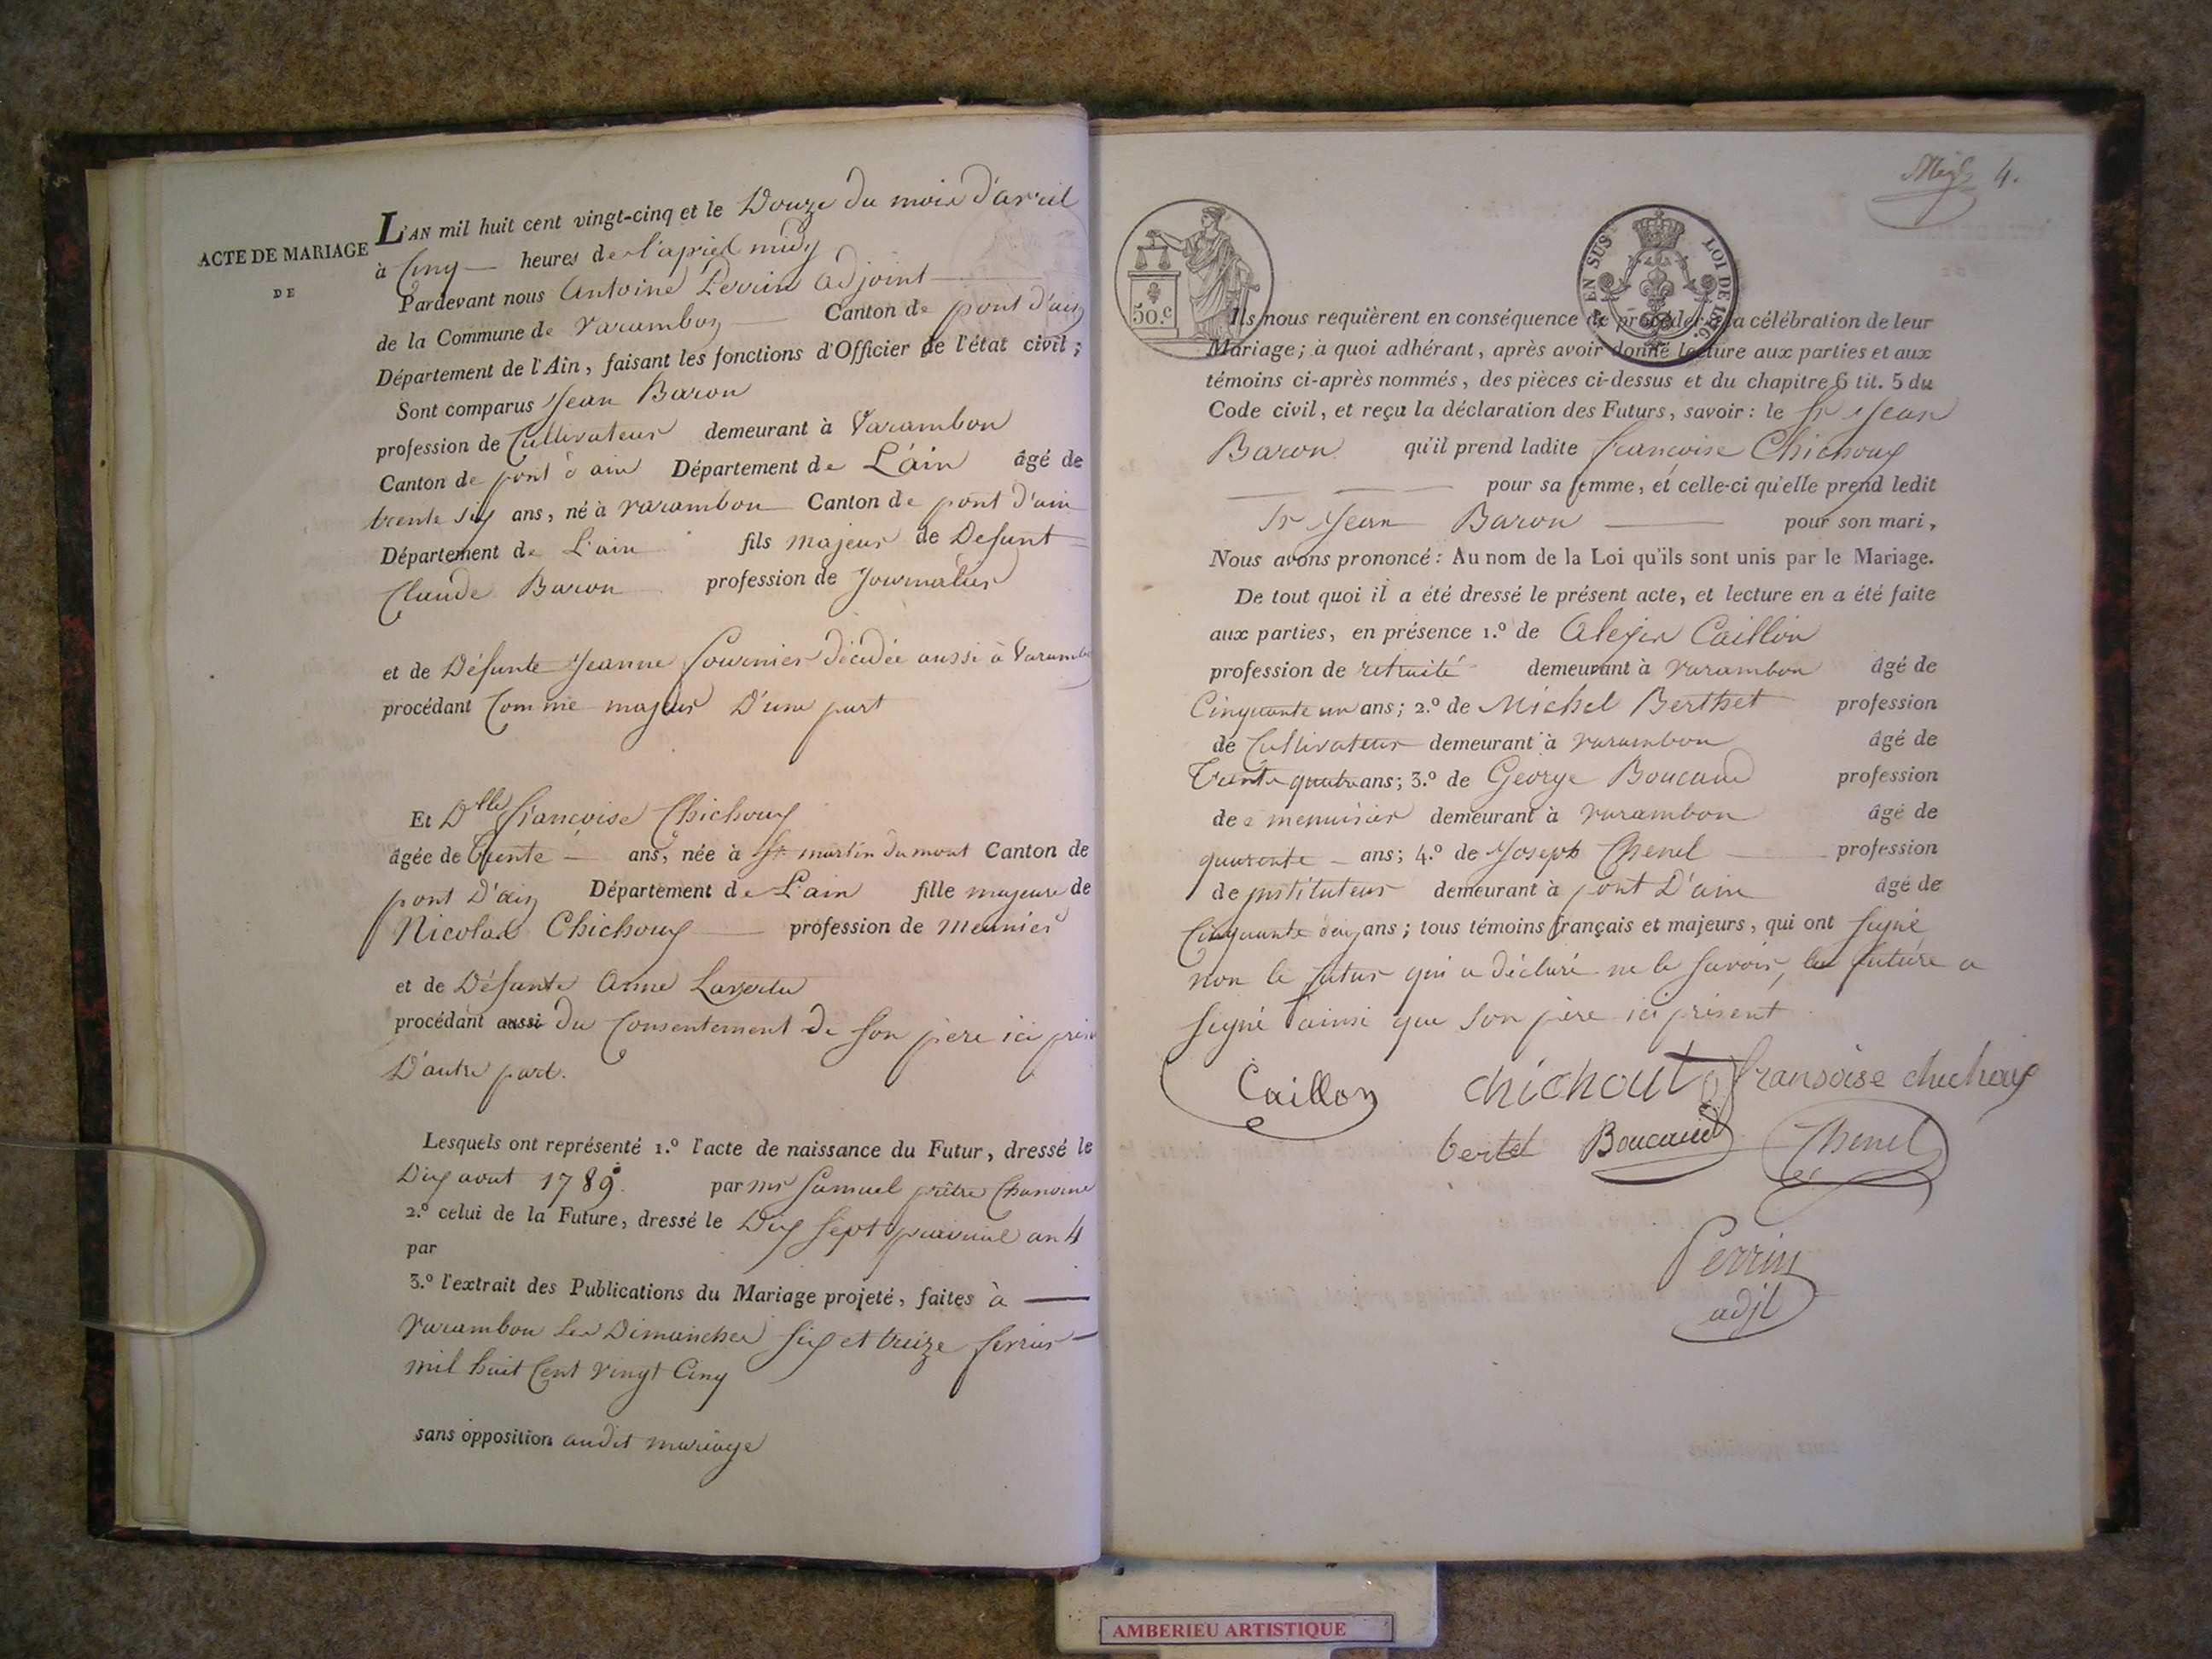 ACTE DE MARIAGE
DE
L'AN mil huit cent vingt-cinq et le Douze du mois d'avril
à Cinq heures de l'après midy
Pardevant nous Antoine Perrin adjoint
de la Commune de Varambon Canton de pont d'ain
Département de l'Ain, faisant les fonctions d'Officier de l'état civil ;
Sont comparus Jean Baron
profession de Cultivateur demeurant à Varambon
Canton de pont d'ain Département de L'ain âgé de
trente six ans, né à varambon Canton de pont d'ain
Département de L'ain fils majeur de Defunt
Claude Baron profession de Journalier
et de Défunte Jeanne fournier décédée aussi à Varambon
procédant Comme majeur D'une part
Et Dlle françoise Chichoux
âgée de trente ans, née à St martin du mont Canton de
pont D'ain Département de L'ain fille majeure de
Nicolas Chichoux profession de Meunier
et de Défunte Anne
procédant aussi du Consentement de son père ici
D'autre part.
Lesquels ont représenté 1.º l'acte de naissance du Futur, dressé le
Dix aout 1789 par mr Samuel prêtre Chanoine
2.º celui de la Future, dressé le Dix sept prairial an 4
par
3.º l'extrait des Publications du Mariage projeté, faites à
Varambon les Dimanches six et treize
mil huit Cent vingt Cinq
sans opposition audit mariage
4.
50.c
EN SUS LOI DE 1816.
Ils nous requièrent en conséquence de procéder à la célébration de leur
Mariage ; à quoi adhérant, après avoir donné lecture aux parties et aux
témoins ci-après nommés, des pièces ci-dessus et du chapitre 6 tit. 5 du
Code civil, et reçu la déclaration des Futurs, savoir : le Sr Jean
Baron qu'il prend ladite francoise Chichoux
pour sa femme, et celle-ci qu'elle prend ledit
Sr Jean Baron pour son mari,
Nous avons prononcé : Au nom de la Loi qu'ils sont unis par le Mariage.
De tout quoi il a été dressé le présent acte, et lecture en a été faite
aux parties, en présence 1.º de Alexis Caillon
profession de retraité demeurant à varambon âgé de
Cinquante un ans ; 2.º de Michel Berthet profession
de Cultivateur demeurant à varambon âgé de
Trente quatre ans ; 3.º de George Boucaud profession
de menuisier demeurant à varambon âgé de
quarante ans ; 4.º de Joseph Chenel profession
de instituteur demeurant à pont D'ain âgé de
Cinquante ans ; tous témoins français et majeurs, qui ont signé
non le futur qui a déclaré ne le savoir, la future a
signé ainsi que son père ici présent
Caillon chichout fransoise chichoux
bertet Boucaud Chenel
Perrin
adjt
AMBERIEU ARTISTIQUE